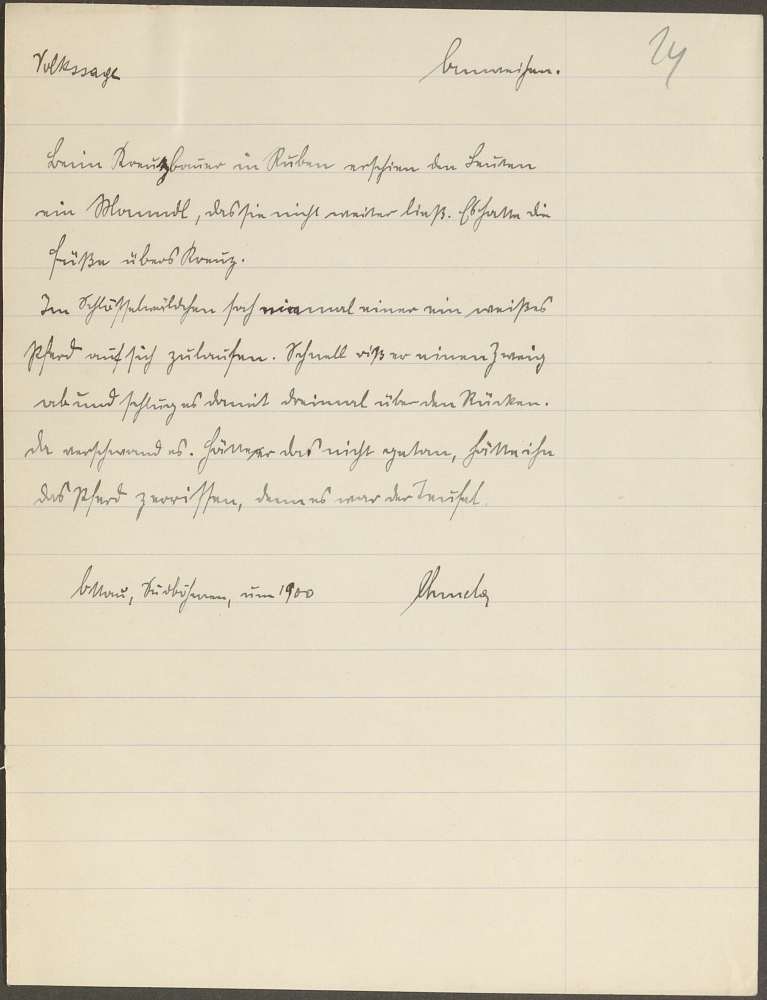 Volkssage
24
Beim Kreuzbauer in Ruben erschien den Leuten
ein Manndl, das sie nicht weiter ließ. Es hatte die
Füße übers Kreuz.
Im Schlösselwäldchen sah einmal einer ein weißes
Pferd auf sich zulaufen. Schnell riß er einen Zweig
ab und schlug es damit dreimal über den Rücken.
Da verschwand es. Hätte er das nicht getan, hätte ihn
das Pferd zerrissen, denn es war der Teufel.
Ottau, Südböhmen, um 1900